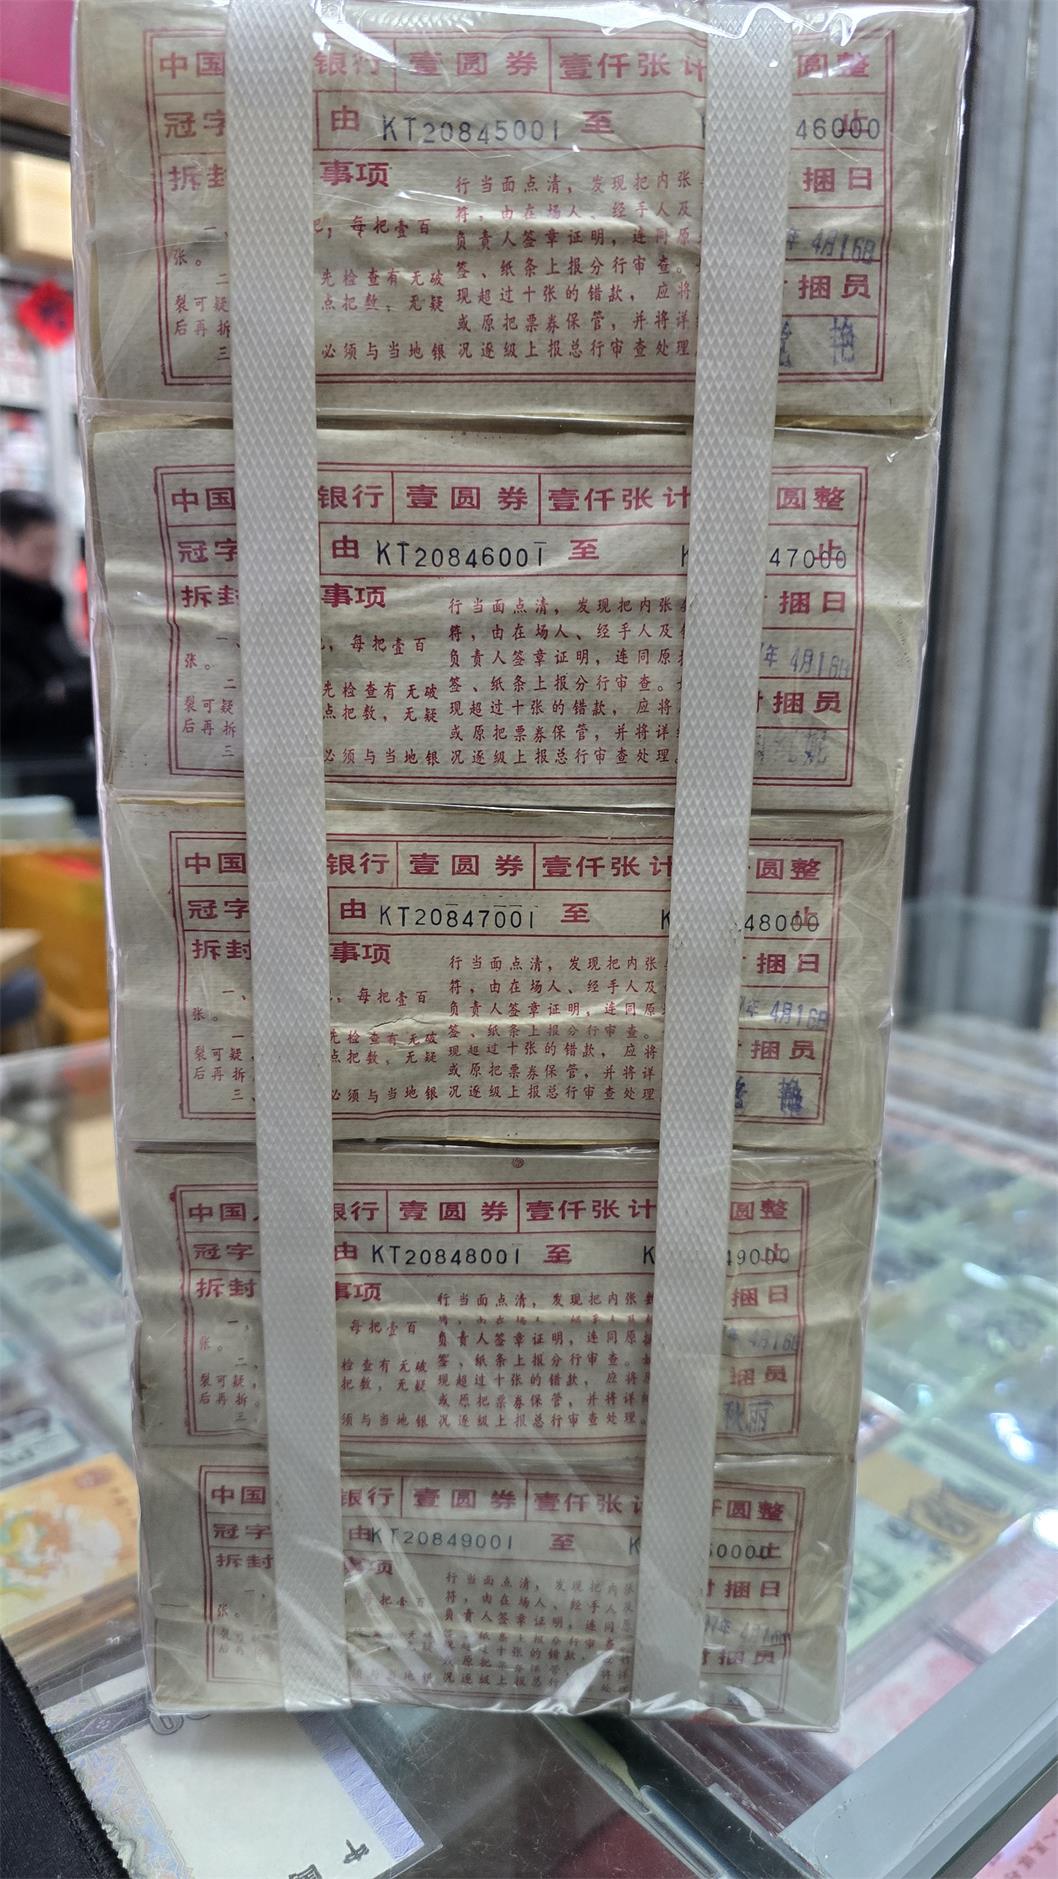 中国 银行 壹圆券 壹仟张计 圆整
冠字 由 KT20845001 至 K 46000止
拆封 事项 捆日
行当面点清，发现把内张
符，由在场人、经手人及
一、 每把壹百
张。
负责人签章证明，连同原
年 4月16日
签、纸条上报分行审查。
二 先检查有无破
捆员
裂可疑 点把数，无疑
现超过十张的错款，应将
后再拆
或原把票券保管，并将详
艳
三 必须与当地银
况逐级上报总行审查处理
中国 银行 壹圆券 壹仟张计 圆整
冠字 由 KT20846001 至 K 47000止
拆封 事项 捆日
行当面点清，发现把内张
符，由在场人、经手人及
一、 每把壹百
张。
负责人签章证明，连同原
年 4月16日
签、纸条上报分行审查。
二 先检查有无破
捆员
裂可疑 点把数，无疑
现超过十张的错款，应将
后再拆
或原把票券保管，并将详
三 必须与当地银
况逐级上报总行审查处理。
中国 银行 壹圆券 壹仟张计 圆整
冠字 由 KT20847001 至 K 48000止
拆封 事项 捆日
行当面点清，发现把内张
符，由在场人、经手人及
一、 每把壹百
张。
负责人签章证明，连同原
年 4月16日
签、纸条上报分行审查。
先检查有无破
捆员
裂可疑， 点把数，无疑
现超过十张的错款，应将
后再拆
或原把票券保管，并将详
艳
三、 必须与当地银
况逐级上报总行审查处理
中国 银行 壹圆券 壹仟张计 圆整
冠字 由 KT20848001 至 K 49000止
拆封 事项 捆日
行当面点清，发现把内张
一， 每把壹百
张。
负责人签章证明，连同原
年 4月16日
签、纸条上报分行审查。
二、 检查有无破
捆员
裂可疑， 把数，无疑
现超过十张的错款，应将
后再拆。
或原把票券保管，并将详
秋丽
三 须与当地银
况逐级上报总行审查处理。
中国 银行 壹圆券 壹仟张计 仟圆整
冠字 由KT20849001 至 K 50000止
拆封 事项 捆日
行当面点清，发现把内张
符，由在场人、经手人
一、 每把壹百
张。
负责人签章证明，连同
年 4月16日
捆员